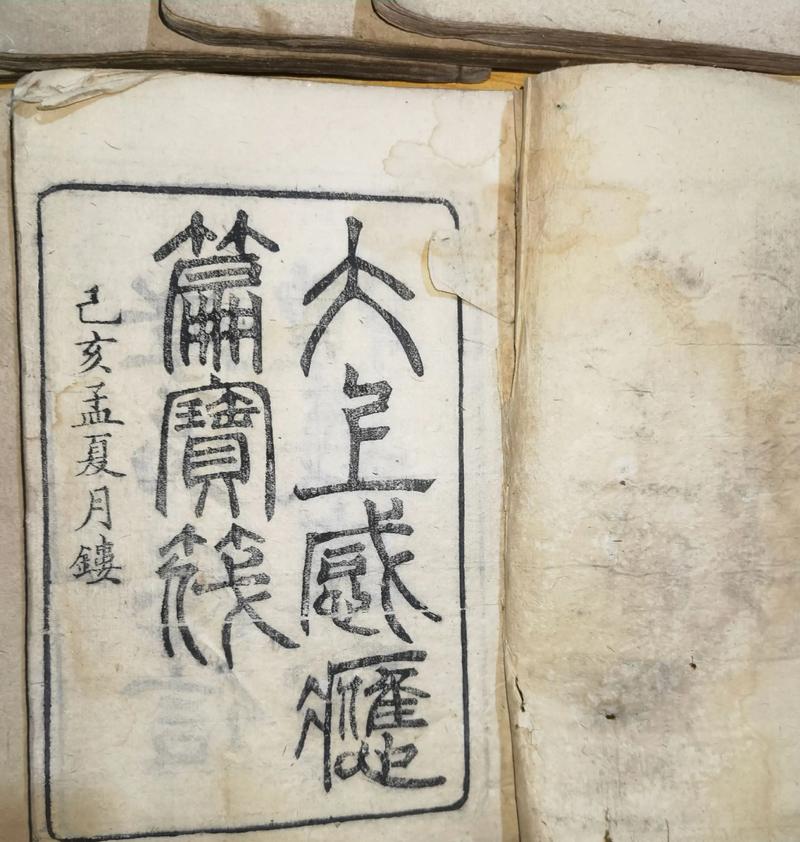 大上感應
篇寶筏
己亥孟夏月鏤